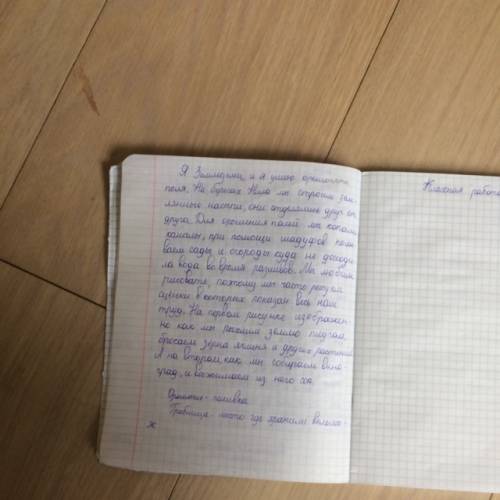 Я Земледелец и я умею орошать
поля. На берегах Нила мы строим зем
лянные насыпи, они отделяют друг от
друга. Для орошения полей мы копаем
каналы, при помощи шадуфов поли
ваем сады и огороды куда не доходи
ла вода во время разливов. Мы любим
рисовать, поэтому мы часто рисуем
сценки в которых показан весь наш
труд. На первом рисунке изображен
но как мы пашем землю плугом,
бросаем зерна ячменя и других растений
А на втором как мы собираем вино
град, и выжимаем из него сок.
Орошение - поливка
Гробница - место где хранили вельмож-
Классная работа